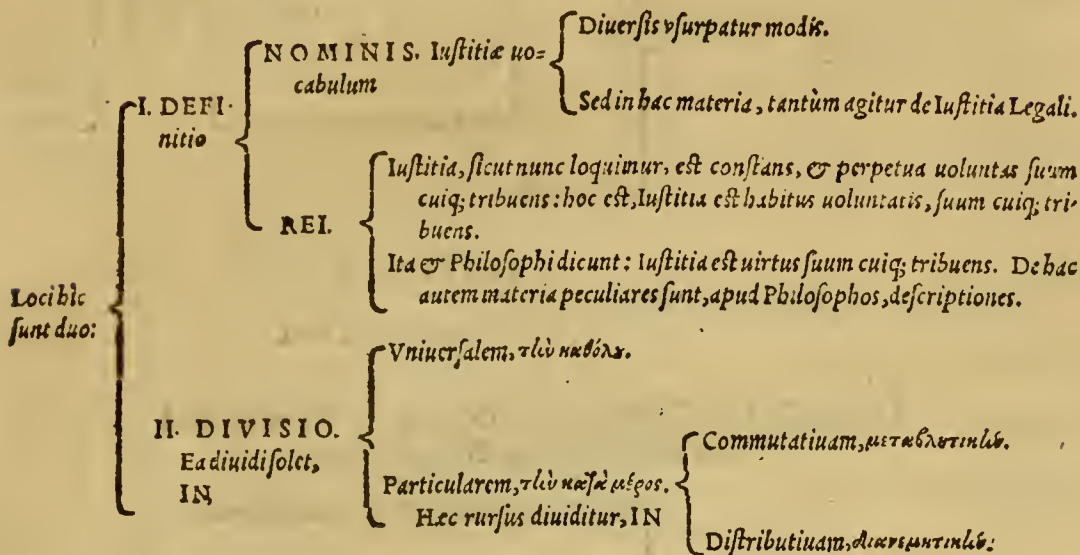 Locihîc
sunt duo:
I. DEFI-
nitio
NOMINIS. Iustitiæ uo=
cabulum
Diuersis vsurpatur modis.
Sed in hac materia, tantùm agitur de Iustitia Legali.
REI.
Iustitia, sicut nunc loquimur, est constans, & perpetua uoluntas suum
cuiq; tribuens: hoc est, Iustitia est habitus uoluntatis, suum cuiq; tri-
buens.
Ita & Philosophi dicunt: Iustitia est uirtus suum cuiq; tribuens. De hac
autem materia peculiares sunt, apud Philosophos, descriptiones.
II. DIVISIO.
Ea diuidi solet,
IN
Vniuersalem, τὴν καθόλου.
Particularem, τὴν κατὰ μέρος.
Hæc rursus diuiditur, IN
Commutatiuam, μεταβλητικὴν.
Distributiuam, διανεμητικὴν: